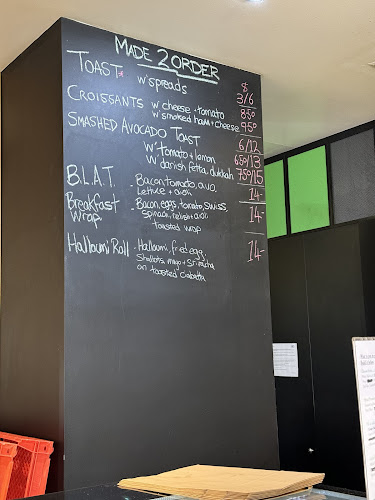 MADE 2 ORDER
TOAST* w' spreads $ 3/6
CROISSANTS w cheese + tomato 8.50
w smoked ham + cheese 9.50
SMASHED AVOCADO TOAST 6/12
w' tomato + lemon 6.50/13
w danish fetta, dukkah 7.50/15
B.L.A.T. - Bacon, tomato, avo, 14-
lettuce + aioli
Breakfast - Bacon, eggs, tomato, swiss, 14-
Wrap spinach, relish + aioli
toasted wrap
Halloumi Roll - Halloumi, fried egg, 14
Shallots, mayo + Sriracha
on toasted Ciabatta